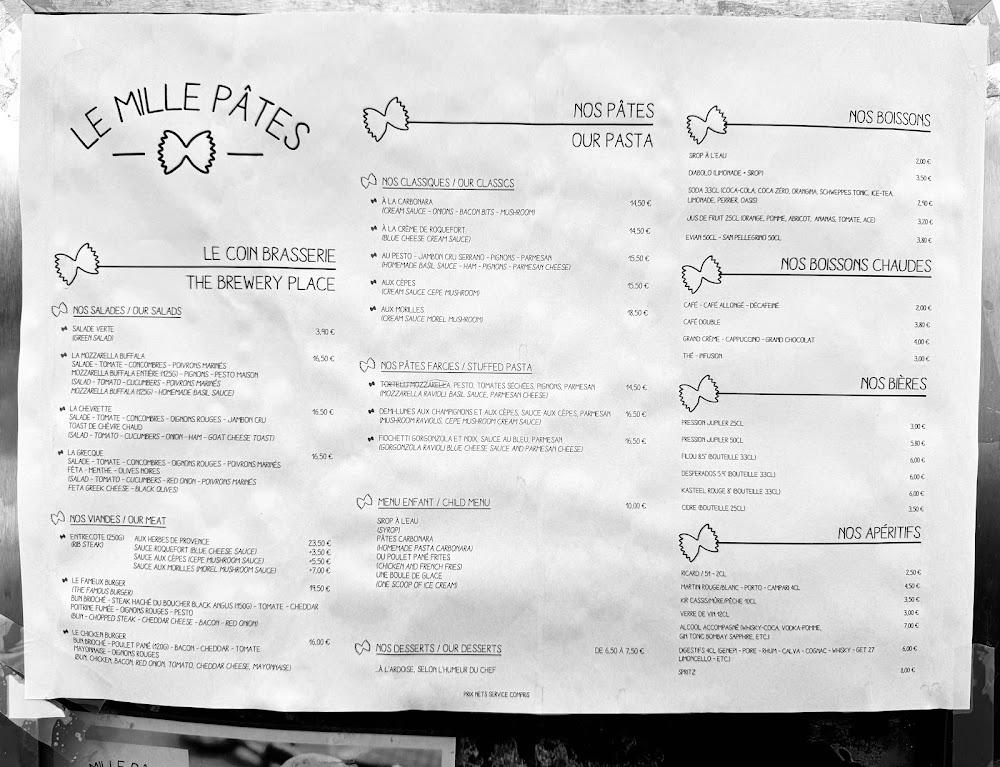 LE MILLE PÂTES
LE COIN BRASSERIE
THE BREWERY PLACE
NOS SALADES / OUR SALADS
SALADE VERTE 3,90 €
(GREEN SALAD)
LA MOZZARELLA BUFFALA 16,50 €
SALADE - TOMATE - CONCOMBRES - POIVRONS MARINÉS
MOZZARELLA BUFFALA ENTIÈRE (125G) - PIGNONS - PESTO MAISON
(SALAD - TOMATO - CUCUMBERS - POIVRONS MARINÉS
MOZZARELLA BUFFALA (125G) - HOMEMADE BASIL SAUCE)
LA CHEVRETTE 16,50 €
SALADE - TOMATE - CONCOMBRES - OIGNONS ROUGES - JAMBON CRU
TOAST DE CHÈVRE CHAUD
(SALAD - TOMATO - CUCUMBERS - ONION - HAM - GOAT CHEESE TOAST)
LA GRECQUE 16,50 €
SALADE - TOMATE - CONCOMBRES - OIGNONS ROUGES - POIVRONS MARINÉS
FÉTA - MENTHE - OLIVES NOIRES
(SALAD - TOMATO - CUCUMBERS - RED ONION - POIVRONS MARINÉS
FETA GREEK CHEESE - BLACK OLIVES)
NOS VIANDES / OUR MEAT
ENTRECOTE (250G) AUX HERBES DE PROVENCE 23,50 €
(RIB STEAK) SAUCE ROQUEFORT (BLUE CHEESE SAUCE) +3,50 €
SAUCE AUX CÈPES (CEPE MUSHROOM SAUCE) +5,50 €
SAUCE AUX MORILLES (MOREL MUSHROOM SAUCE) +7,00 €
LE FAMEUX BURGER 19,50 €
(THE FAMOUS BURGER)
BUN BRIOCHÉ - STEAK HACHÉ DU BOUCHER BLACK ANGUS (150G) - TOMATE - CHEDDAR
POITRINE FUMÉE - OIGNONS ROUGES - PESTO
(BUN - CHOPPED STEAK - CHEDDAR CHEESE - BACON - RED ONION)
LE CHICKEN BURGER 16,00 €
BUN BRIOCHÉ - POULET PANÉ (120G) - BACON - CHEDDAR - TOMATE
MAYONNAISE - OIGNONS ROUGES
(BUN, CHICKEN, BACON, RED ONION, TOMATO, CHEDDAR CHEESE, MAYONNAISE)
NOS PÂTES
OUR PASTA
NOS CLASSIQUES / OUR CLASSICS
À LA CARBONARA 14,50 €
(CREAM SAUCE - ONIONS - BACON BITS - MUSHROOM)
À LA CRÈME DE ROQUEFORT 14,50 €
(BLUE CHEESE CREAM SAUCE)
AU PESTO - JAMBON CRU SERRANO - PIGNONS - PARMESAN 15,50 €
(HOMEMADE BASIL SAUCE - HAM - PIGNONS - PARMESAN CHEESE)
AUX CÈPES 15,50 €
(CREAM SAUCE CEPE MUSHROOM)
AUX MORILLES 18,50 €
(CREAM SAUCE MOREL MUSHROOM)
NOS PÂTES FARCIES / STUFFED PASTA
TORTELLI MOZZARELLA, PESTO, TOMATES SÉCHÉES, PIGNONS, PARMESAN 14,50 €
(MOZZARELLA RAVIOLI BASIL SAUCE, PARMESAN CHEESE)
DEMI-LUNES AUX CHAMPIGNONS ET AUX CÈPES, SAUCE AUX CÈPES, PARMESAN 16,50 €
(MUSHROOM RAVIOLIS, CEPE MUSHROOM CREAM SAUCE)
FIOCHETTI GORGONZOLA ET NOIX, SAUCE AU BLEU, PARMESAN 16,50 €
(GORGONZOLA RAVIOLI BLUE CHEESE SAUCE AND PARMESAN CHEESE)
MENU ENFANT / CHILD MENU 10,00 €
SIROP À L'EAU
(SYROP)
PÂTES CARBONARA
(HOMEMADE PASTA CARBONARA)
OU POULET PANÉ FRITES
(CHICKEN AND FRENCH FRIES)
UNE BOULE DE GLACE
(ONE SCOOP OF ICE CREAM)
NOS DESSERTS / OUR DESSERTS DE 6,50 À 7,50 €
...À L'ARDOISE, SELON L'HUMEUR DU CHEF
PRIX NETS SERVICE COMPRIS
NOS BOISSONS
SIROP À L'EAU 2,00 €
DIABOLO (LIMONADE + SIROP) 3,50 €
SODA 33CL (COCA-COLA, COCA ZÉRO, ORANGINA, SCHWEPPES TONIC, ICE-TEA,
LIMONADE, PERRIER, OASIS) 2,90 €
JUS DE FRUIT 25CL (ORANGE, POMME, ABRICOT, ANANAS, TOMATE, ACE) 3,20 €
EVIAN 50CL - SAN PELLEGRINO 50CL 3,80 €
NOS BOISSONS CHAUDES
CAFÉ - CAFÉ ALLONGÉ - DÉCAFEINÉ 2,00 €
CAFÉ DOUBLE 3,80 €
GRAND CRÈME - CAPPUCCINO - GRAND CHOCOLAT 4,00 €
THÉ - INFUSION 3,00 €
NOS BIÈRES
PRESSION JUPILER 25CL 3,00 €
PRESSION JUPILER 50CL 5,80 €
FILOU 8.5° (BOUTEILLE 33CL) 6,00 €
DESPERADOS 5.9° (BOUTEILLE 33CL) 6,00 €
KASTEEL ROUGE 8° (BOUTEILLE 33CL) 6,00 €
CIDRE (BOUTEILLE 25CL) 3,50 €
NOS APÉRITIFS
RICARD / 51 - 2CL 2,50 €
MARTINI ROUGE/BLANC - PORTO - CAMPARI 4CL 4,50 €
KIR CASSIS/MÛRE/PÊCHE 10CL 3,50 €
VERRE DE VIN 12CL 3,00 €
ALCOOL ACCOMPAGNÉ (WHISKY-COCA, VODKA-POMME, 7,00 €
GIN TONIC BOMBAY SAPPHIRE, ETC.)
DIGESTIFS 4CL (GENEPI - POIRE - RHUM - CALVA - COGNAC - WHISKY - GET 27 6,00 €
LIMONCELLO - ETC)
SPRITZ 8,00 €